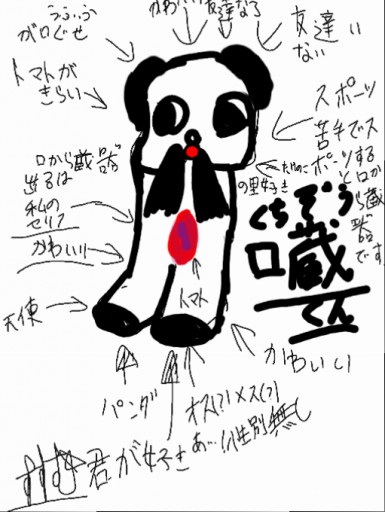 うふふぅ
が口ぐせ
かわいい友達なう
友達い
ない
トマトが
きらい
スポーツ
苦手でス
ポーツする
と口か
ら蔵
器
です
口から蔵器
出るは
私の
セリフ
たけのこ
の里好き
かわいい
くちぞう
口蔵
くん
トマト
天使
かわいい
パンダ
オス(?)メス(?)
あ…(性別無し
君が好き